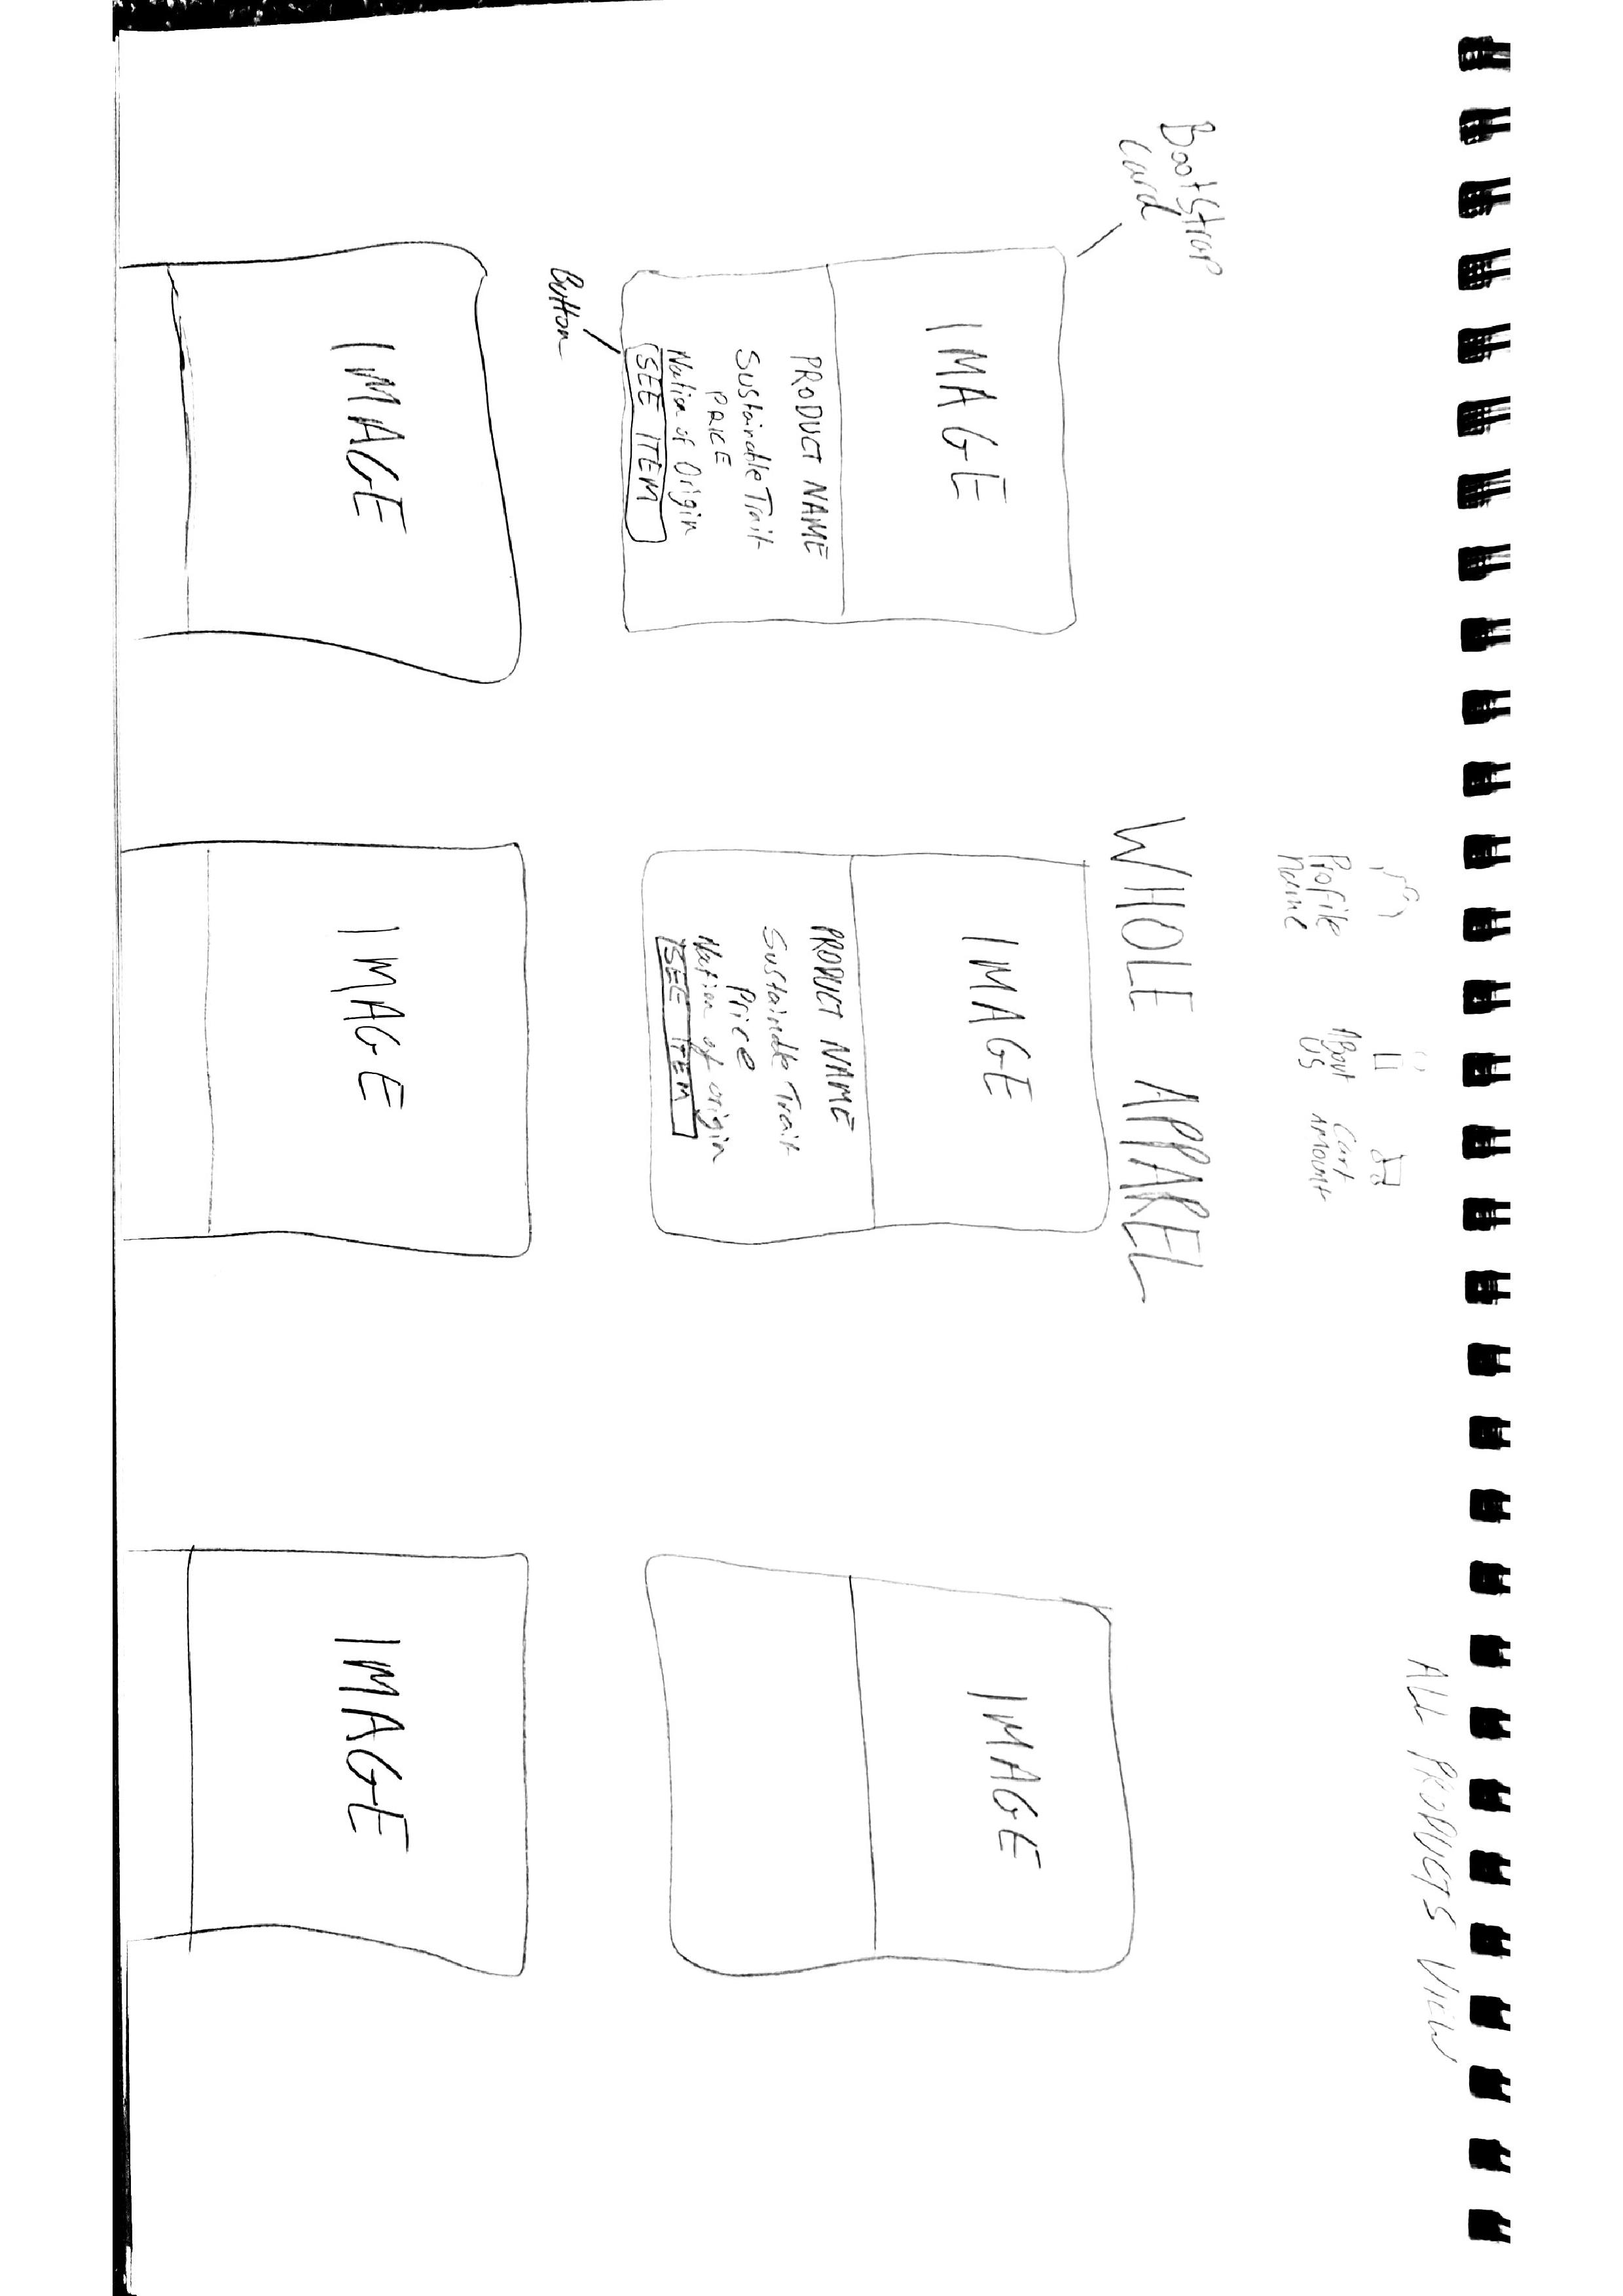 ALL PRODUCTS VIEW
Profile
Name
About
US
Cart
Amount
WHOLE APPAREL
Bootstrap
Card
IMAGE
PRODUCT NAME
Sustainable Trait
PRICE
Nation of Origin
SEE ITEM
Button
IMAGE
PRODUCT NAME
Sustainable Trait
Price
Nation of origin
SEE ITEM
IMAGE
IMAGE
IMAGE
IMAGE